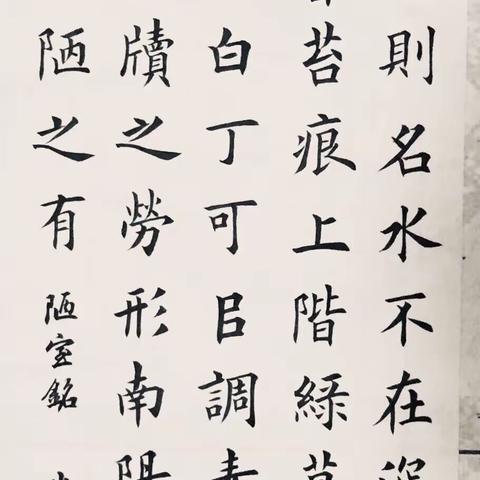 則名水不在深
苔痕上階綠草
白丁可㠯調素
牘之勞形南陽
陋之有
陋室銘